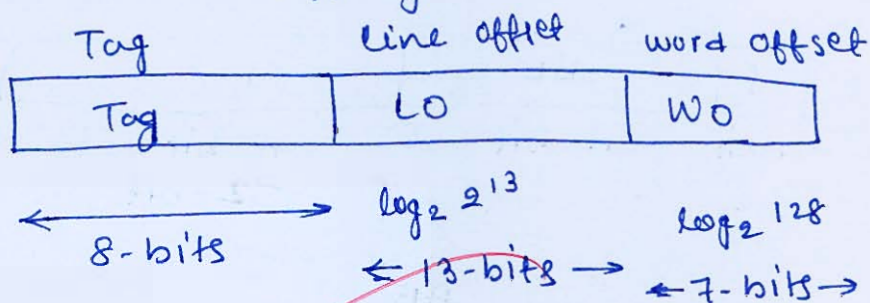 Tag line offset word offset
Tag LO WO
log₂ 2¹³ log₂ 128
8-bits 13-bits 7-bits